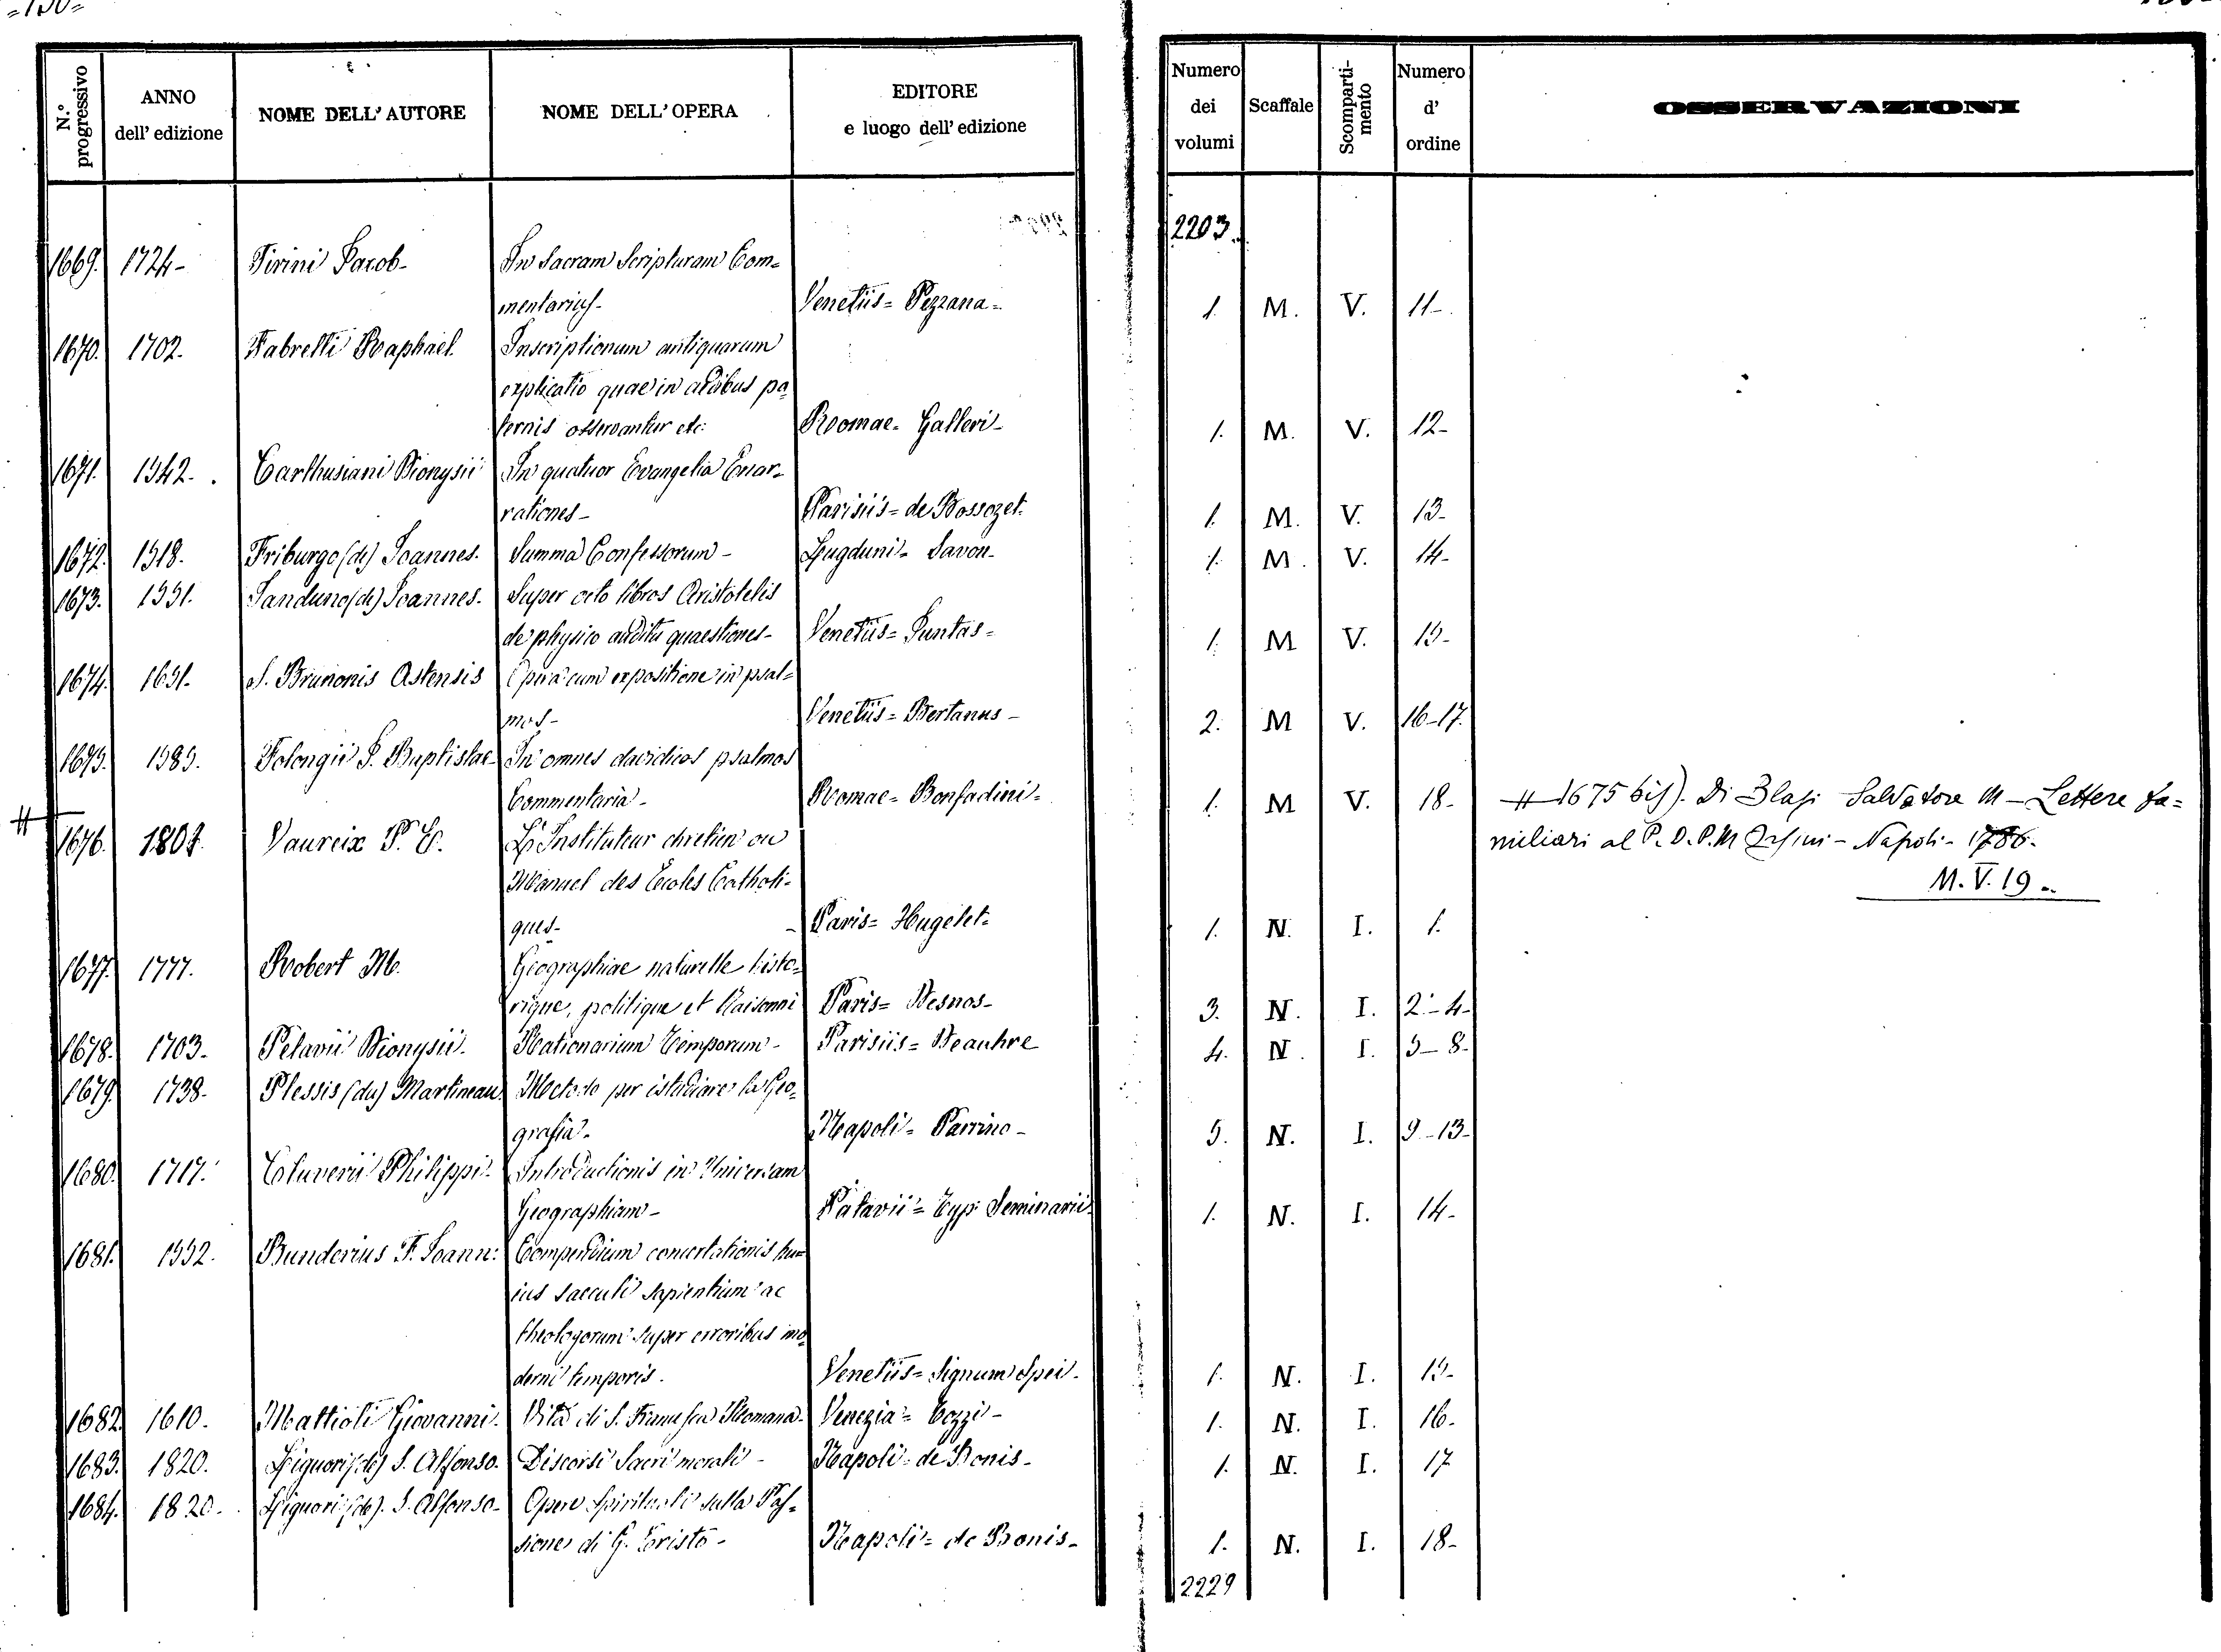 =150=
N.° progressivo
ANNO dell' edizione
NOME DELL' AUTORE
NOME DELL' OPERA
EDITORE e luogo dell' edizione
Numero dei volumi
Scaffale
Scomparti-mento
Numero d' ordine
OSSERVAZIONI
2203.
1669. 1724- Tirini Jacob- In Sacram Scripturam Com=
mentarius- Venetiis= Pezzana= 1. M. V. 11-
1670. 1702. Fabretti Raphael. Inscriptionum antiquarum
explicatio quae in aedibus pa
ternis osservantur etc: Romae= Galleri- 1. M. V. 12-
1671. 1542. Carthusiani Dionysii In quatuor Evangelia Enar=
rationes- Parisiis= de Bossozet. 1. M. V. 13-
1672. 1518. Friburgo (de) Joannes. Summa Confessorum- Lugduni= Savon- 1. M. V. 14-
1673. 1551. Janduno (de) Joannes. Super octo libros Aristotelis
de physico auditu quaestiones- Venetiis= Juntas= 1. M V. 15-
1674. 1651. S. Brunonis Astensis Opera cum expositione in psal=
mos- Venetiis= Bertanus- 2. M V. 16-17.
1675. 1585. Folengii J. Baptistae- In omnes davidicos psalmos
Commentaria- Romae= Bonfadini= 1. M V. 18- # 1675 bis). Di Blasi Salvatore M - Lettere fa=
# 1676. 1807. Vaureix P. C. L'Instituteur chretien ou miliari al P. D. P. M - Napoli- 1786-
Manuel des Ecoles Catholi- M. V. 19..
ques- Paris= Hugelet= 1. N. I. 1.
1677. 1777. Robert M. Geographiae naturelle histo=
rique, politique et Raisonni Paris= Desnos- 3. N. I. 2-4-
1678. 1703. Petavii Dionysii. Rationarium Temporum- Parisiis= Deauhre 4. N. I. 5-8-
1679. 1738. Plessis (du) Martineau Metodo per istudiare la Geo=
grafia- Napoli= Parrino- 5. N. I. 9-13-
1680. 1717. Cluverii Philippi. Introductionis in Universam
Geographiam- Patavii= Typ: Seminarii. 1. N. I. 14-
1681. 1552. Bunderius F. Joann: Compendium concertationis hu=
ius saeculi sapientium ac
theologorum super erroribus mo=
derni temporis. Venetiis= Signum Spei- 1. N. I. 15-
1682. 1610. Mattioli Giovanni. Vita di S. Francesca Romana- Venezia= Cozzi- 1. N. I. 16-
1683. 1820. Liguori (de) S. Alfonso. Discorsi Sacri morali- Napoli= de Bonis- 1. N. I. 17
1684. 1820. Liguori (de). S. Alfonso- Opere Spirituali sulla Pas=
sione di G. Cristo- Napoli= de Bonis- 1. N. I. 18-
2229